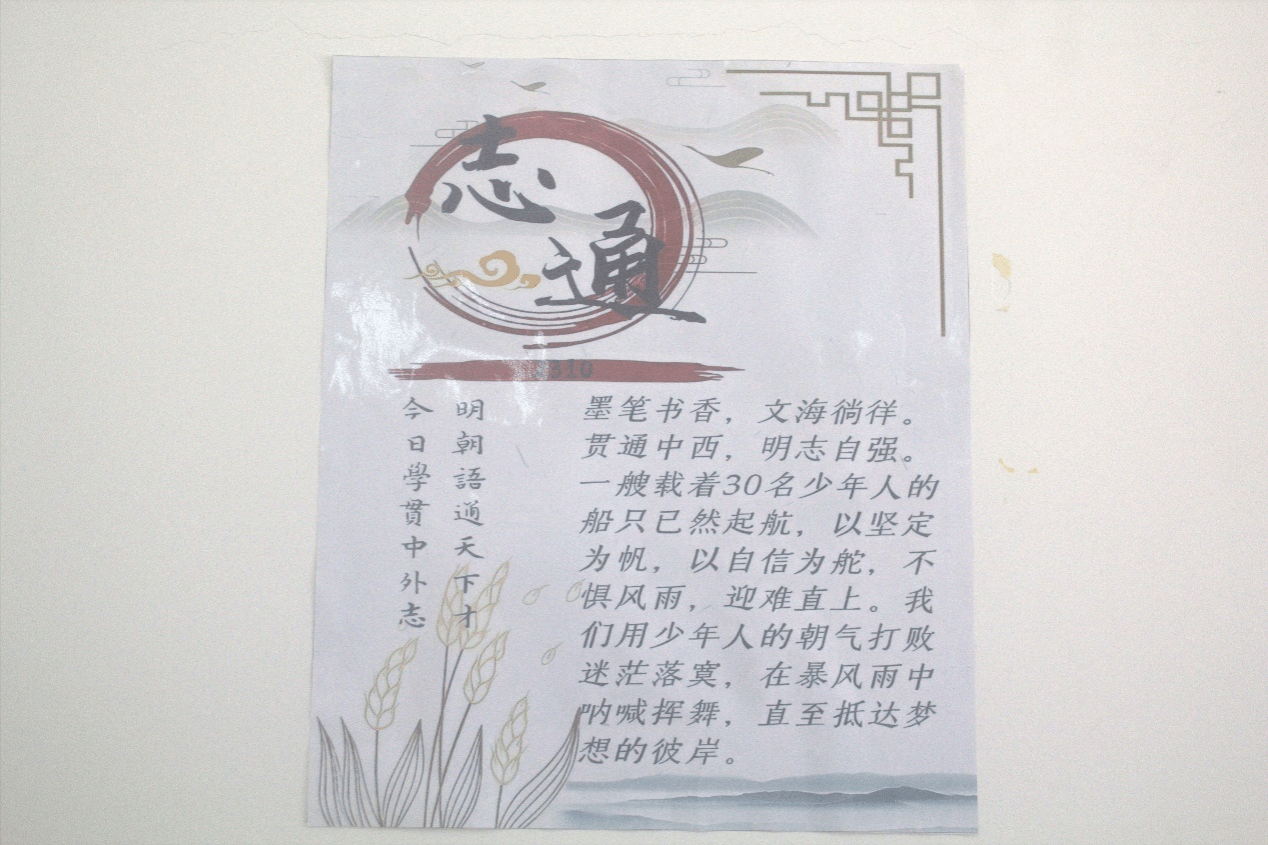 志通
墨笔书香，文海徜徉。
贯通中西，明志自强。
一艘载着30名少年人的
船只已然起航，以坚定
为帆，以自信为舵，不
惧风雨，迎难直上。我
们用少年人的朝气打败
迷茫落寞，在暴风雨中
呐喊挥舞，直至抵达梦
想的彼岸。
今日學貫中外志
明朝語通天下才